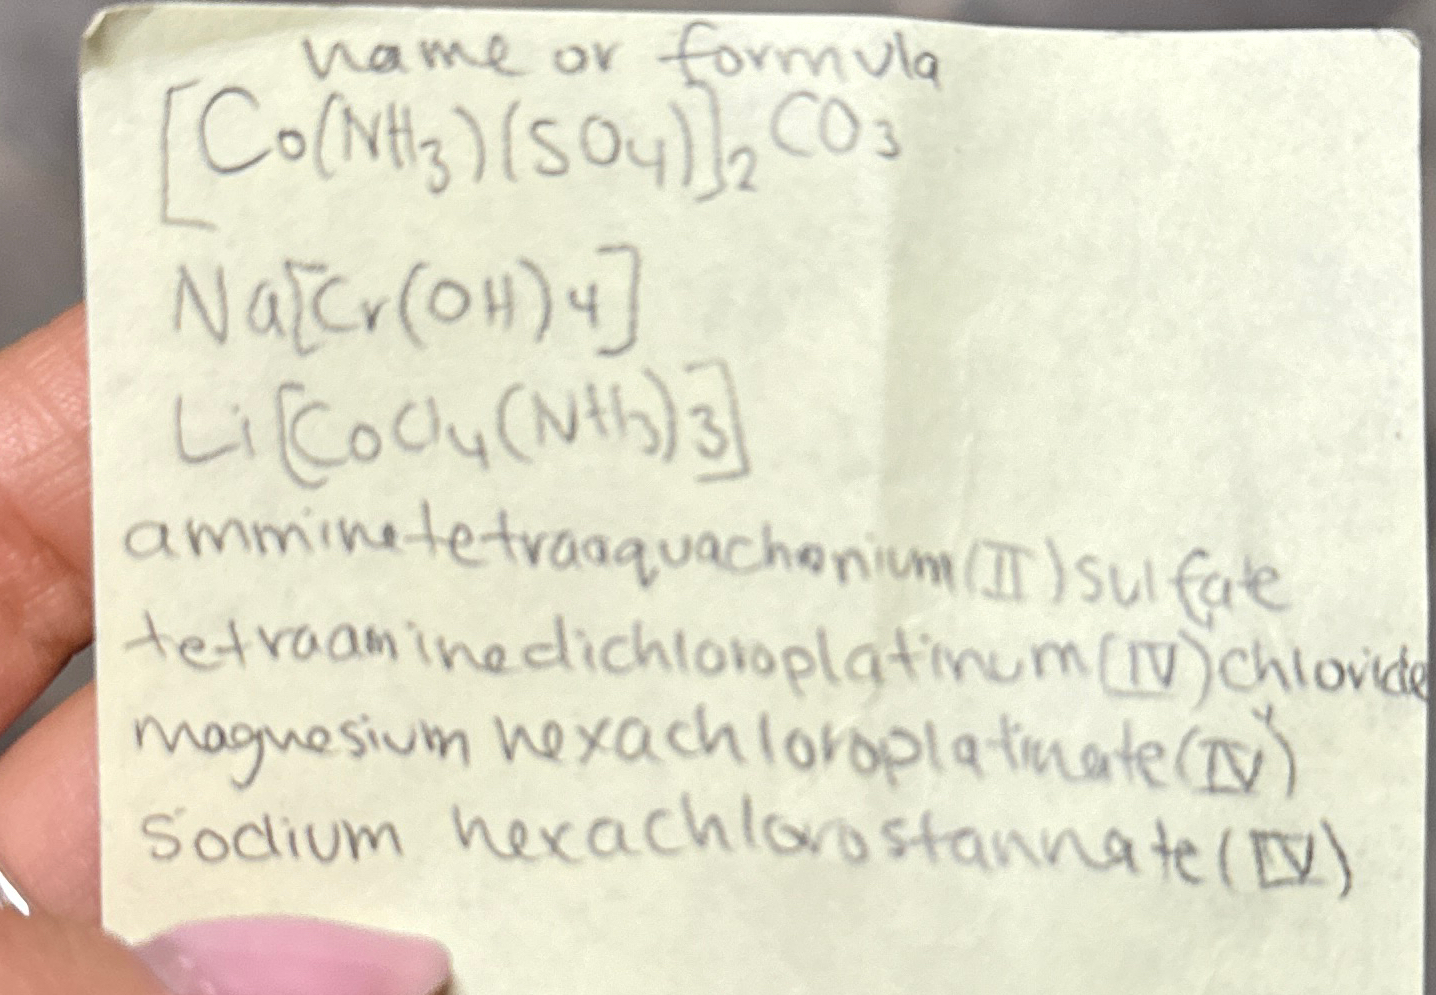 name or formula
[Co(NH3)(SO4)]2CO3
Na[Cr(OH)4]
Li[CoCl4(NH3)3]
amminetetraaquachonium(II)sulfate
tetraaminedichloroplatinum(IV)chloride
magnesium hexachloroplatinate(IV)
Sodium hexachlorostannate(IV)